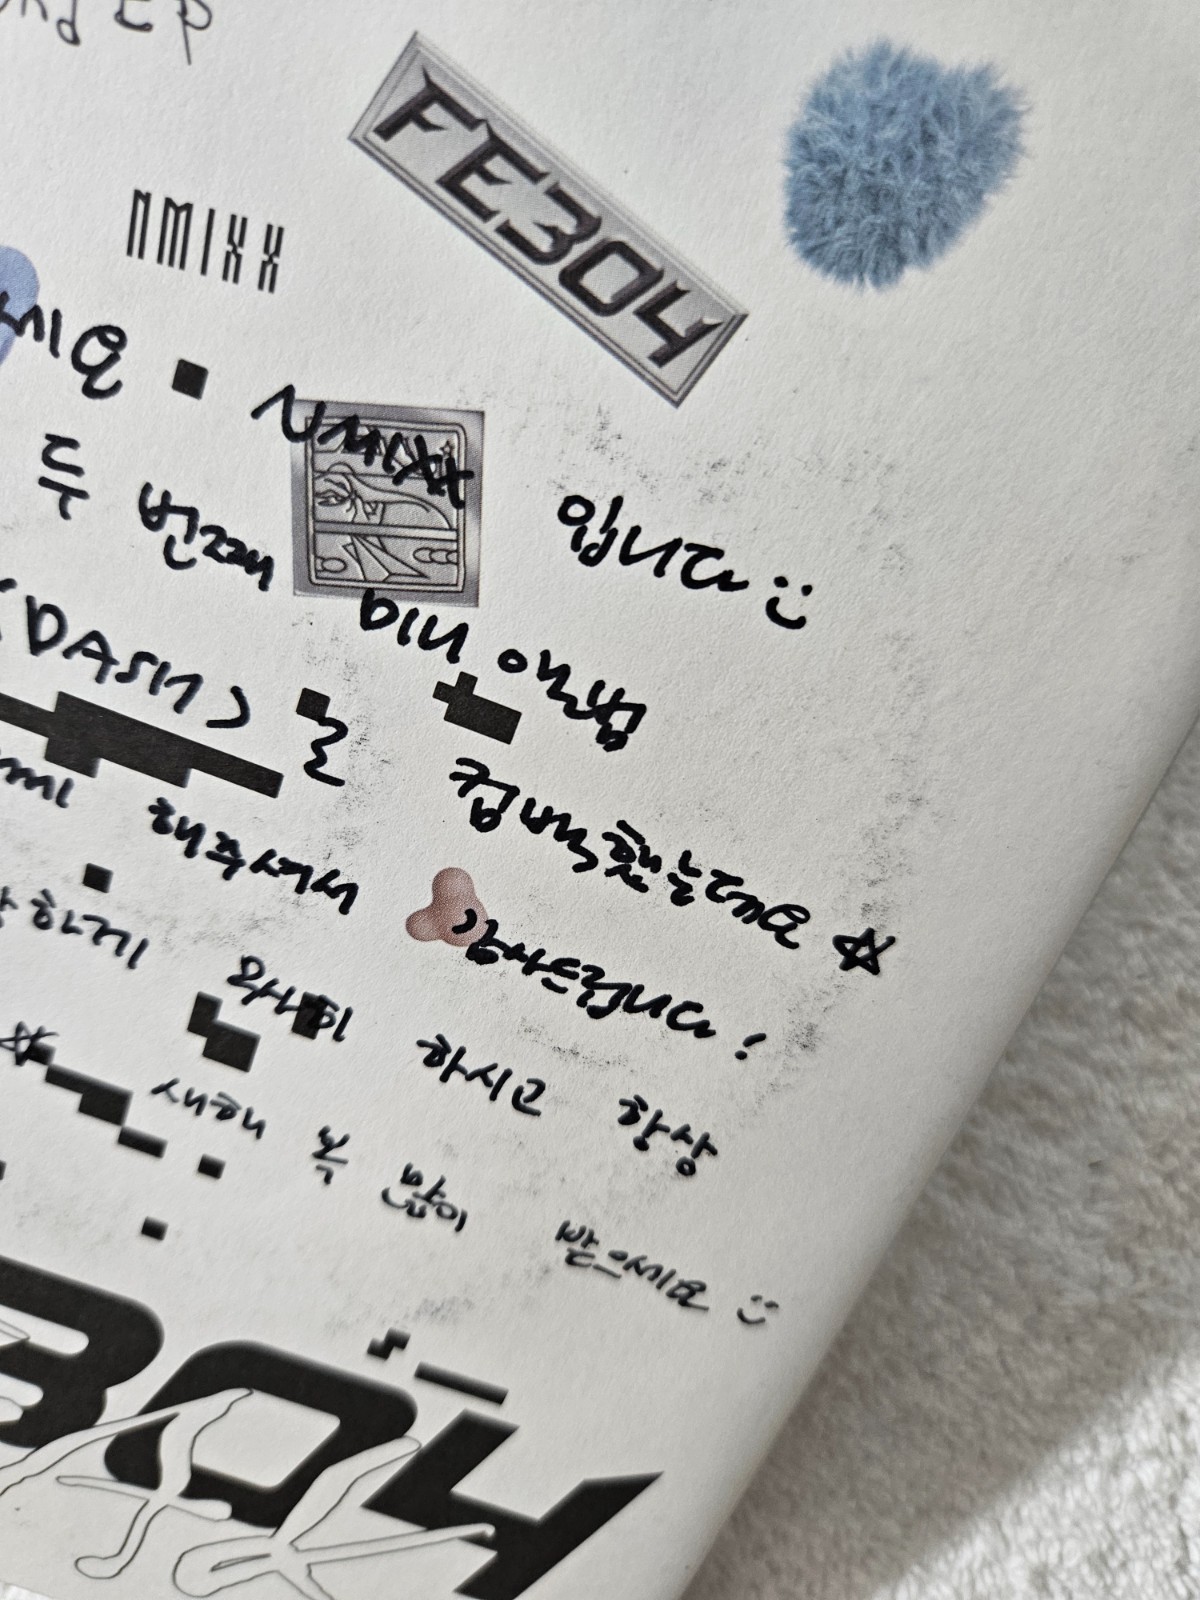 nd EP
FE304
NMIXX
세요 NMIXX 입니다 :)
두 번째 미니 앨범
<DASH>로 컴백했는데요 ☆
해주셔서 감사드립니다!
하고 하시고 항상
☆ 새해 복 많이 받으세요 :)
304